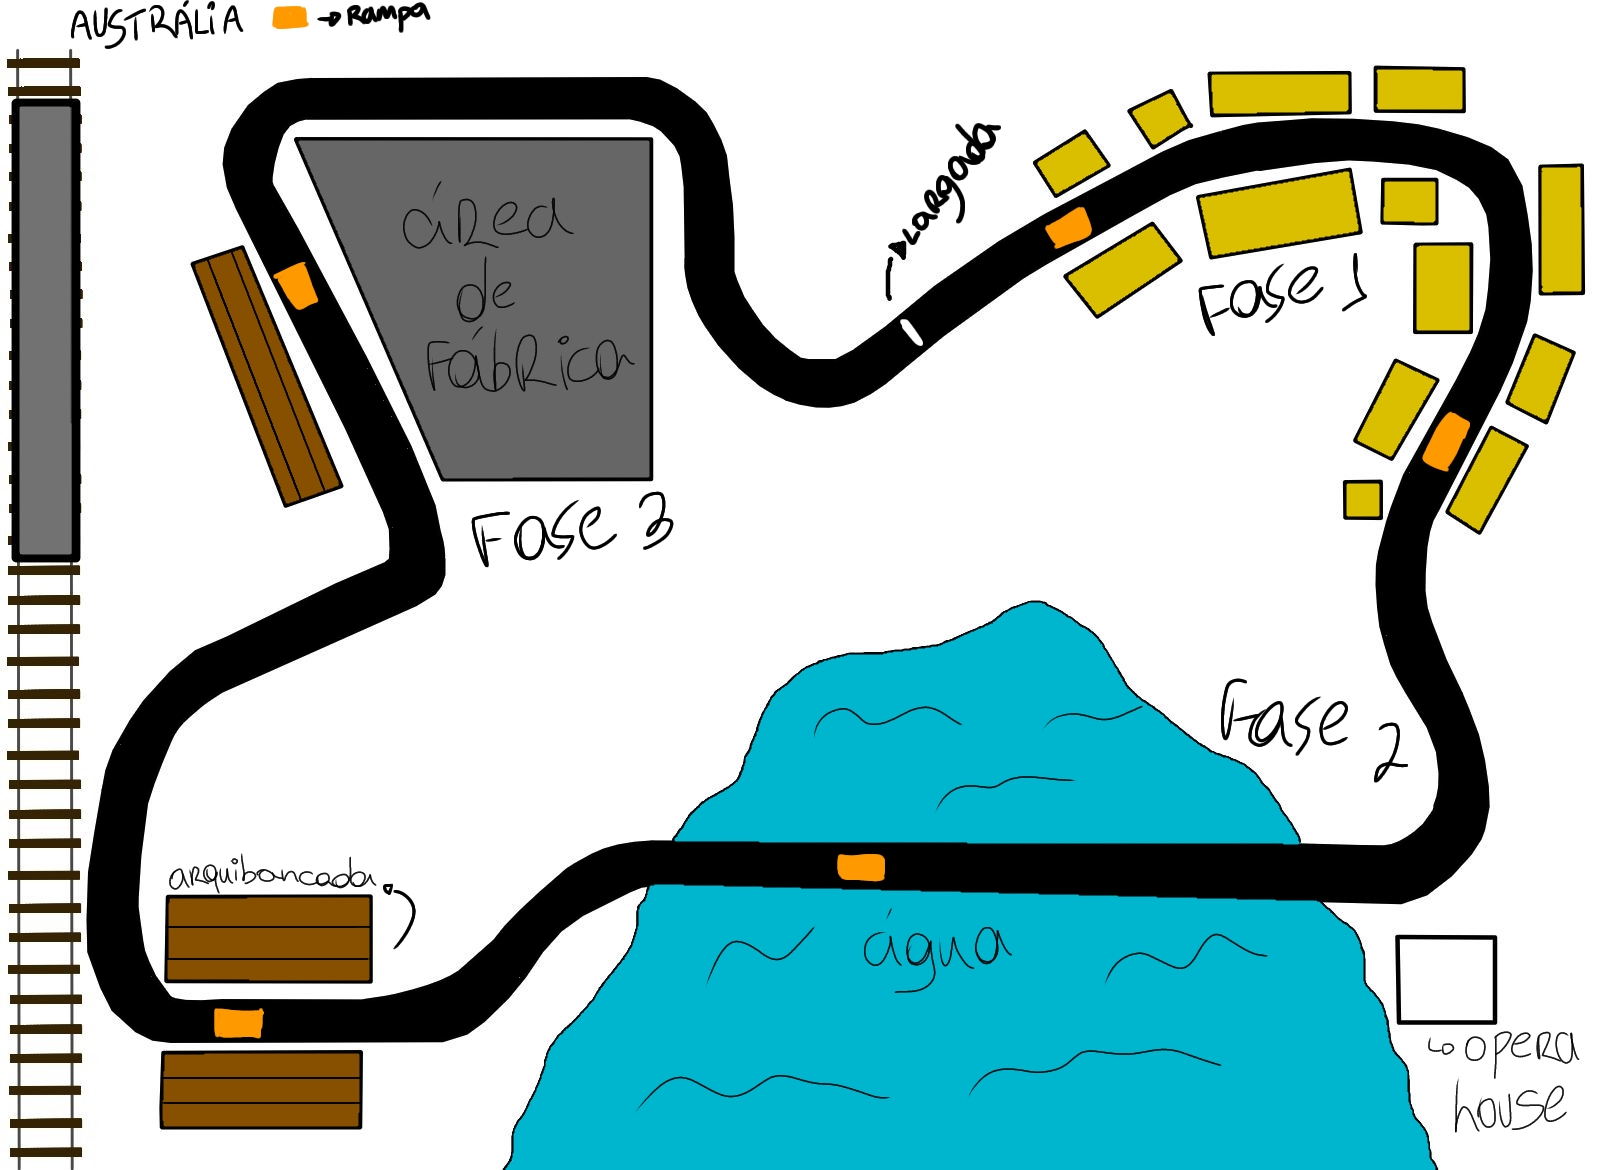 AUSTRÁLIA
→ Rampa
Largada
área
de
Fábrica
Fase 1
Fase 3
Fase 2
arquibancada
água
opera
house